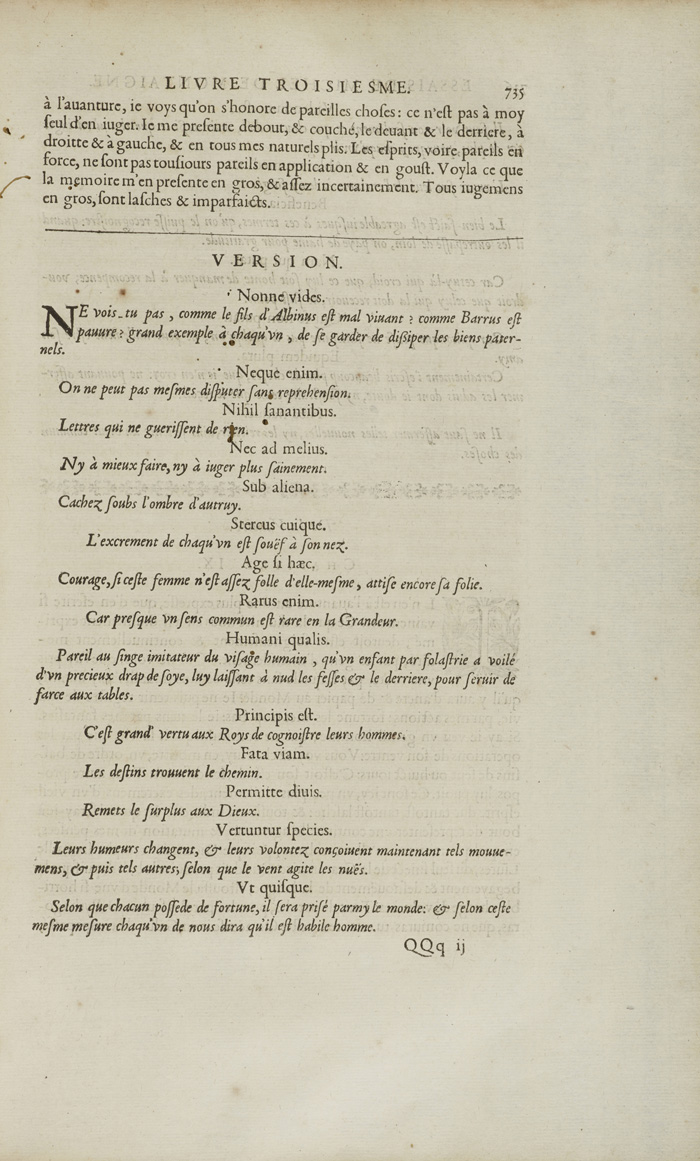 LIVRE TROISIESME. 735
à l'auanture, ie voys qu'on s'honore de pareilles choses: ce n'est pas à moy
seul d'en iuger. Ie me presente debout, & couché, le deuant & le derriere, à
droitte & à gauche, & en tous mes naturels plis. Les esprits, voire pareils en
force, ne sont pas tousiours pareils en application & en goust. Voyla ce que
la memoire m'en presente en gros, & assez incertainement. Tous iugemens
en gros, sont lasches & imparfaicts.
VERSION.
Nonne vides.
NE vois-tu pas, comme le fils d'Albinus est mal viuant? comme Barrus est
pauure? grand exemple à chaqu'vn, de se garder de dissiper les biens pater-
nels.
Neque enim.
On ne peut pas mesmes disputer sans reprehension.
Nihil sanantibus.
Lettres qui ne guerissent de rien.
Nec ad melius.
Ny à mieux faire, ny à iuger plus sainement.
Sub aliena.
Cachez soubs l'ombre d'autruy.
Stercus cuique.
L'excrement de chaqu'vn est souëf à son nez.
Age si hæc.
Courage, si ceste femme n'est assez folle d'elle-mesme, attise encore sa folie.
Rarus enim.
Car presque vn sens commun est rare en la Grandeur.
Humani qualis.
Pareil au singe imitateur du visage humain, qu'vn enfant par folastrie a voilé
d'vn precieux drap de soye, luy laissant à nud les fesses & le derriere, pour seruir de
farce aux tables.
Principis est.
C'est grand' vertu aux Roys de cognoistre leurs hommes.
Fata viam.
Les destins trouuent le chemin.
Permitte diuis.
Remets le surplus aux Dieux.
Vertuntur species.
Leurs humeurs changent, & leurs volontez conçoiuent maintenant tels mouue-
mens, & puis tels autres, selon que le vent agite les nuës.
Vt quisque.
Selon que chacun possede de fortune, il sera prisé parmy le monde: & selon ceste
mesme mesure chaqu'vn de nous dira qu'il est habile homme.
QQq ij